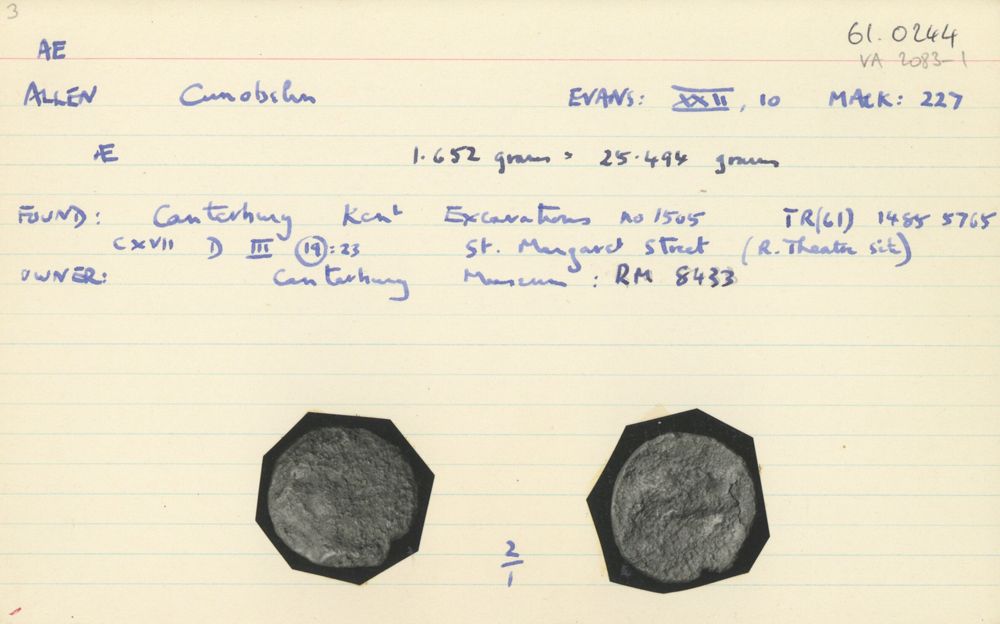 3
61.0244
AE
VA 2083-1
ALLEN Cunobelin EVANS: XXII, 10 MACK: 227
Æ 1.652 grams = 25.494 grains
FOUND: Canterbury Kent Excavations no 1505 TR(61) 1485 5765
CXVII D III (19):23 St. Margaret Street (R. Theatre site)
OWNER: Canterbury Museum: RM 8433
2
1